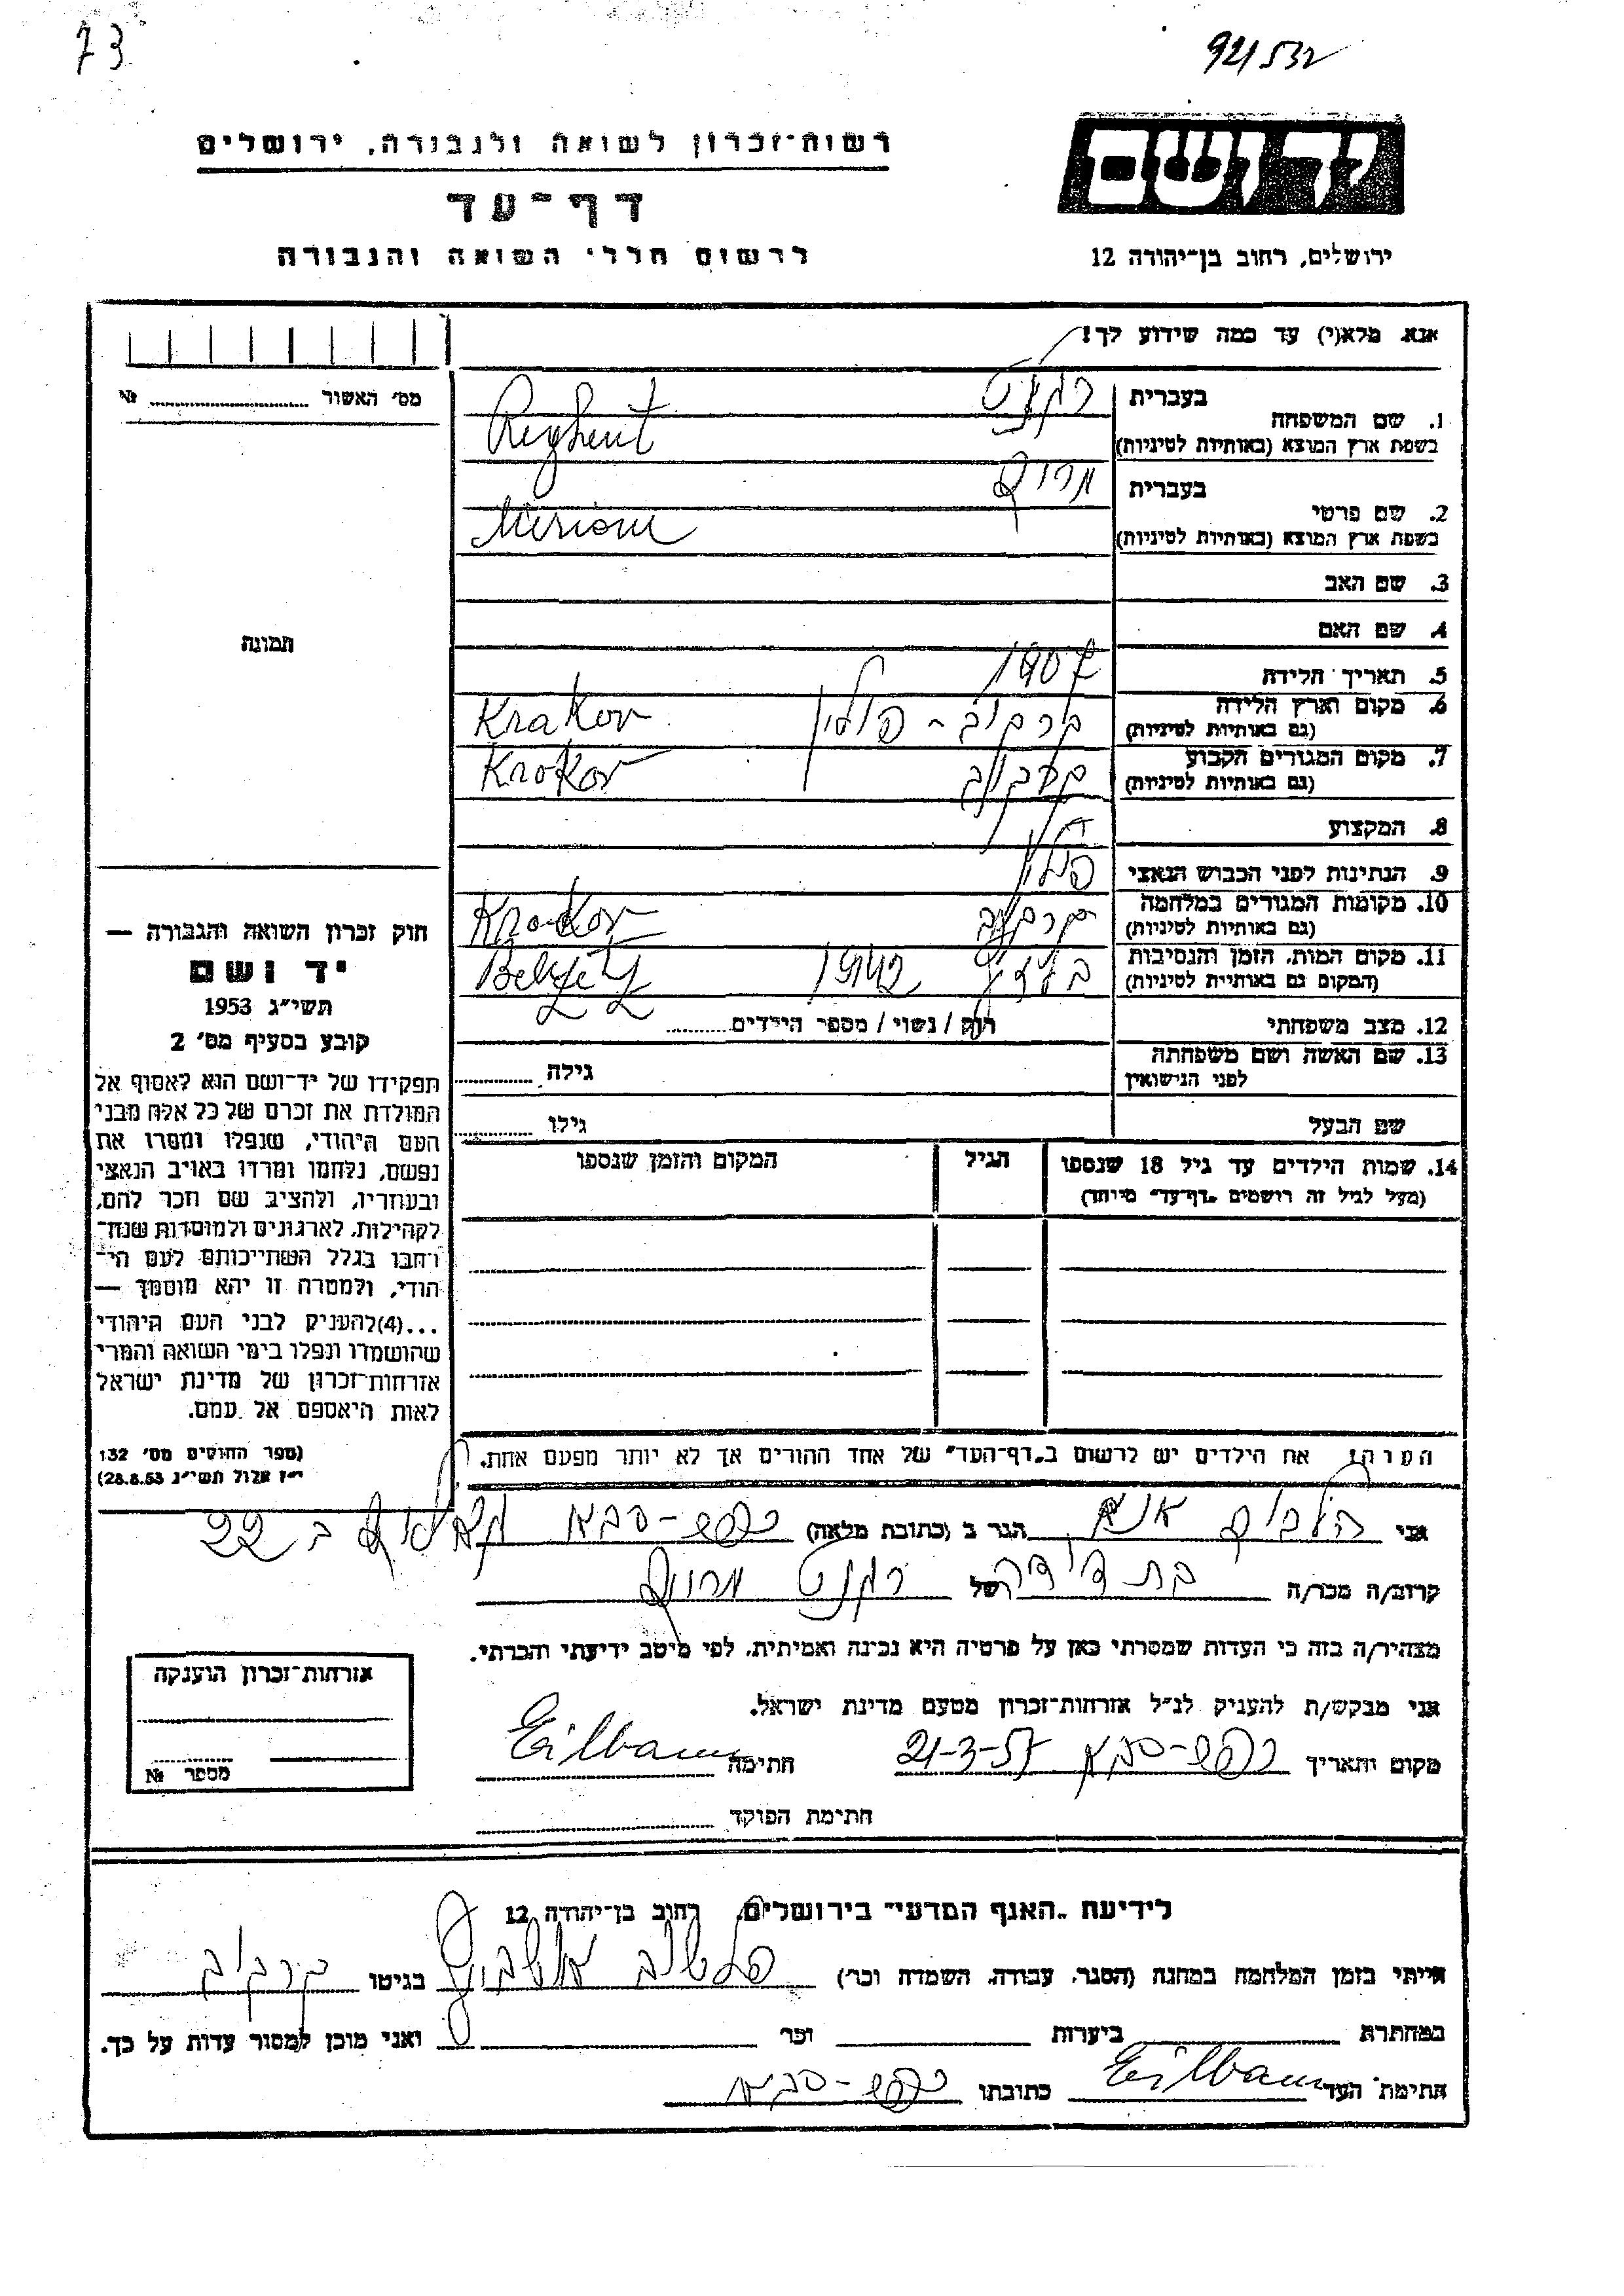 73
921532
רשות־זכרון לשואה ולגבורה, ירושלים
יד ושם
דף־עד
לרשום חללי השואה והגבורה
ירושלים, רחוב בן־יהודה 12
אנא מלא(י) עד כמה שידוע לך!
מס׳ האשור № 
1. שם המשפחה
בעברית רגנט
בשפת ארץ המוצא (באותיות לטיניות) Reghent
2. שם פרטי
בעברית מרים
בשפת ארץ המוצא (באותיות לטיניות) Miriam
3. שם האב
4. שם האם
תמונה
5. תאריך הלידה 1907
6. מקום וארץ הלידה
(גם באותיות לטיניות) קרקוב - פולין Krakov
7. מקום המגורים הקבוע
(גם באותיות לטיניות) קרקוב Krakov
8. המקצוע
9. הנתינות לפני הכבוש הנאצי
10. מקומות המגורים במלחמה
(גם באותיות לטיניות) קרקוב Krakov
11. מקום המות, הזמן והנסיבות
(המקום גם באותיות לטיניות) 1942
12. מצב משפחתי רוק / נשוי / מספר הילדים
13. שם האשה ושם משפחתה
לפני הנישואין גילה
שם הבעל גילו
14. שמות הילדים עד גיל 18 שנספו הגיל המקום והזמן שנספו
(מעל לגיל זה רושמים „דף־עד״ מיוחד)
חוק זכרון השואה והגבורה —
יד ושם
תשי״ג 1953
קובע בסעיף מס׳ 2
תפקידו של יד־ושם הוא לאסוף אל
המולדת את זכרם של כל אלה מבני
העם היהודי, שנפלו ומסרו את
נפשם, נלחמו ומרדו באויב הנאצי
ובעוזריו, ולהציב שם וזכר להם,
לקהילות, לארגונים ולמוסדות שנח־
רבו בגלל השתייכותם לעם הי־
הודי, ולמטרה זו יהא מוסמך —
...(4) להעניק לבני העם היהודי
שהושמדו ונפלו בימי השואה והמרי
אזרחות־זכרון של מדינת ישראל
לאות היאספם אל עמם.
(ספר החוקים מס׳ 132
י״ז אלול תשי״ג 28.8.53)
הערה: את הילדים יש לרשום ב„דף־העד״ של אחד ההורים אך לא יותר מפעם אחת.
אני אנה הגר ב (כתובת מלאה) כפר-סבא ב 22
קרוב/ה מכר/ה בת דודה של רגנט מרים
מצהיר/ה בזה כי העדות שמסרתי כאן על פרטיה היא נכונה ואמיתית, לפי מיטב ידיעתי והכרתי.
אני מבקש/ת להעניק לנ״ל אזרחות־זכרון מטעם מדינת ישראל.
מקום ותאריך כפר-סבא 21-3-57 חתימה Eilbaum
חתימת הפוקד
אזרחות־זכרון הוענקה
מספר №
לידיעת „האגף המדעי״ בירושלים, רחוב בן־יהודה 12
הייתי בזמן המלחמה במחנה (הסגר, עבודה, השמדה וכו׳) פלשוב אושביץ בגיטו קרקוב
במחתרת ביערות וכו׳ ואני מוכן למסור עדות על כך.
חתימת העד Eilbaum כתובתו כפר-סבא